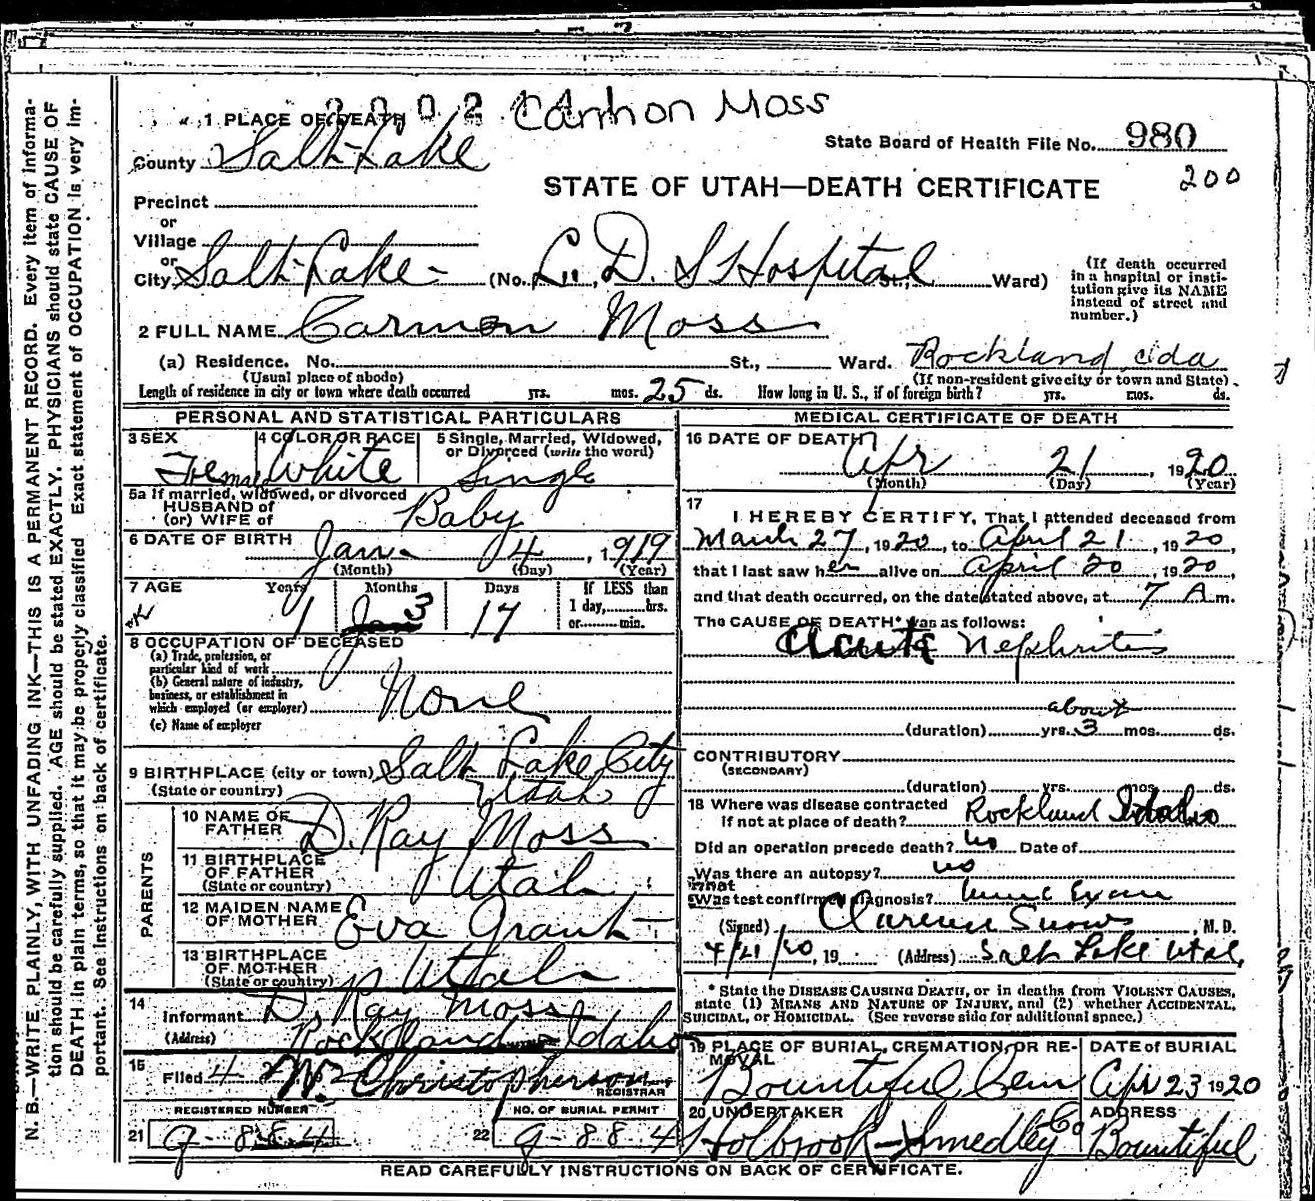 N. B.—WRITE PLAINLY, WITH UNFADING INK—THIS IS A PERMANENT RECORD. Every item of informa-
tion should be carefully supplied. AGE should be stated EXACTLY. PHYSICIANS should state CAUSE OF
DEATH in plain terms, so that it may be properly classified. Exact statement of OCCUPATION is very im-
portant. See instructions on back of certificate.
2002
Moss
1 PLACE OF DEATH
State Board of Health File No. 980
County Salt Lake
200
STATE OF UTAH—DEATH CERTIFICATE
Precinct
or
Village
or
City Salt Lake (No. L. D. S Hospital St., Ward)
(If death occurred
in a hospital or insti-
tution give its NAME
instead of street and
number.)
2 FULL NAME Carmen Moss
(a) Residence. No. St., Ward. Rockland, Ida
(Usual place of abode)
(If non-resident give city or town and State)
Length of residence in city or town where death occurred yrs. mos. 25 ds. How long in U. S., if of foreign birth? yrs. mos. ds.
PERSONAL AND STATISTICAL PARTICULARS
3 SEX Female
4 COLOR OR RACE White
5 Single, Married, Widowed,
or Divorced (write the word)
Single
5a If married, widowed, or divorced
HUSBAND of
(or) WIFE of
Baby
6 DATE OF BIRTH Jan 4, 1919
(Month) (Day) (Year)
7 AGE Years Months Days If LESS than
1 day, hrs.
or min.
1 3 17
8 OCCUPATION OF DECEASED
(a) Trade, profession, or
particular kind of work
(b) General nature of industry,
business, or establishment in
which employed (or employer)
None
(c) Name of employer
9 BIRTHPLACE (city or town) Salt Lake City
(State or country) Utah
PARENTS
10 NAME OF
FATHER D. Ray Moss
11 BIRTHPLACE
OF FATHER
(State or country) Utah
12 MAIDEN NAME
OF MOTHER Eva Grant
13 BIRTHPLACE
OF MOTHER
(State or country) Utah
14
Informant D. Ray Moss
(Address) Rockland Idaho
15
Filed 4 W. Christopherson
REGISTRAR
REGISTERED NUMBER
21 G-884
NO. OF BURIAL PERMIT
22 G-884
MEDICAL CERTIFICATE OF DEATH
16 DATE OF DEATH
Apr 21, 1920
(Month) (Day) (Year)
17
I HEREBY CERTIFY, That I attended deceased from
March 27, 1920, to April 21, 1920,
that I last saw her alive on April 20, 1920,
and that death occurred, on the date stated above, at 7 A m.
The CAUSE OF DEATH* was as follows:
Acute Nephritis
about
(duration) yrs. 3 mos. ds.
CONTRIBUTORY
(SECONDARY)
(duration) yrs. mos. ds.
18 Where was disease contracted
if not at place of death? Rockland Idaho
Did an operation precede death? no Date of
Was there an autopsy? no
What
test confirmed diagnosis? Urine Exam
(Signed) Clarence Snow, M. D.
4/21/20, 19 (Address) Salt Lake Utah,
* State the DISEASE CAUSING DEATH, or in deaths from VIOLENT CAUSES,
state (1) MEANS AND NATURE OF INJURY, and (2) whether ACCIDENTAL,
SUICIDAL, or HOMICIDAL. (See reverse side for additional space.)
19 PLACE OF BURIAL, CREMATION, OR RE-
MOVAL
Bountiful Cem
DATE of BURIAL
Apr 23 1920
20 UNDERTAKER
Holbrook-Smedley Co
ADDRESS
Bountiful
READ CAREFULLY INSTRUCTIONS ON BACK OF CERTIFICATE.